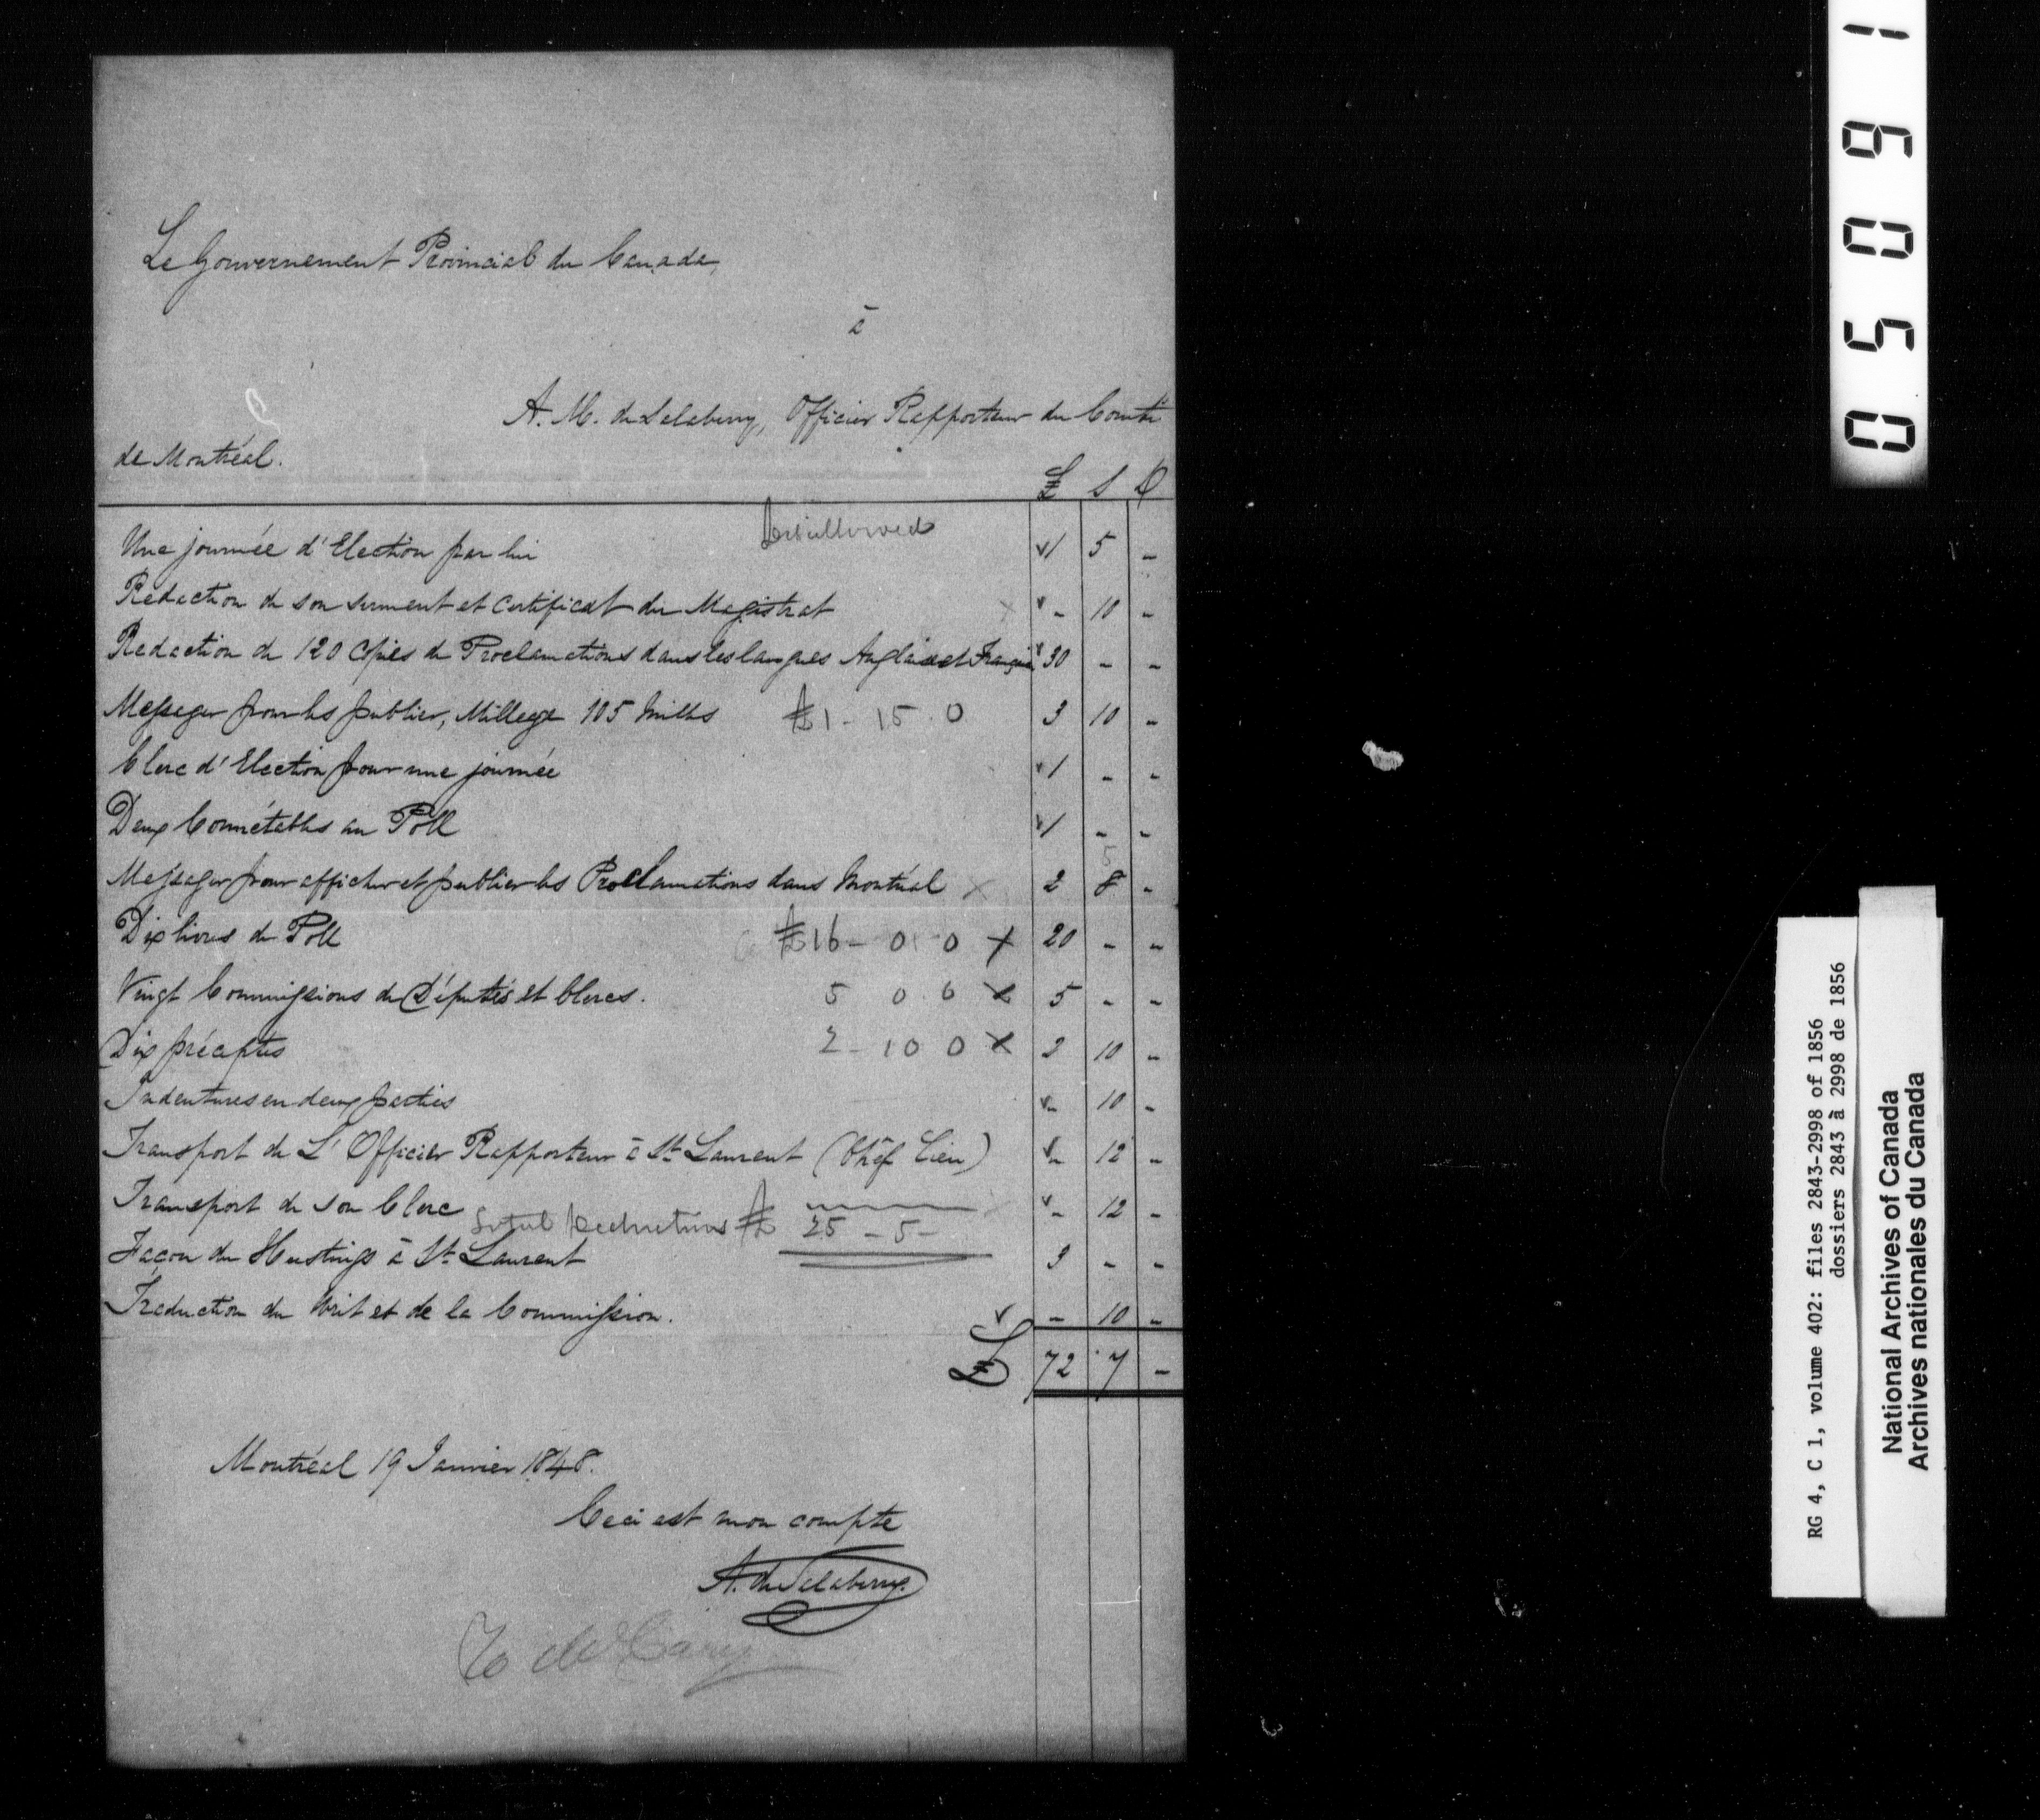 Le Gouvernement Provincial du Canada,
à
A. M. de Salaberry, Officier Rapporteur du Comté
de Montréal.
£ S D
Disallowed
Une journée d'Election par lui √1 5 -
Rédaction de son serment et certificat du Magistrat x √- 10 -
Redaction de 120 Copies de Proclamations dans les langues Anglaise et Française √30 - -
Messager pour les publier, Millege 105 milles £1 - 15 . 0 3 10 -
Clerc d'Election pour une journée √1 - -
Deux Connétables au Poll √1 - -
5
Messager pour afficher et publier les Proclamations dans Montréal x 2 8 -
Dix livres de Poll £16 - 0 - 0 x 20 - -
Vingt Commissions de Députés et Clercs. 5 0 0 x 5 - -
Dix préceptes 2 - 10 0 x 2 10 -
Indentures en deux parties √- 10 -
Transport de L'Officier Rapporteur à St. Laurent (Chéf Lieu) √- 12 -
Transport de son Clerc √- 12 -
Total Deductions £ 25 - 5 -
Façon du Hustings à St. Laurent 3 - -
Traduction du Writ et de la Commission. √ - 10 -
£ 72 7 -
Montréal 19 Janvier 1848.
Ceci est mon compte
A. de Salaberry.
05091
RG 4, C 1, volume 402: files 2843-2998 of 1856
dossiers 2843 à 2998 de 1856
National Archives of Canada
Archives nationales du Canada